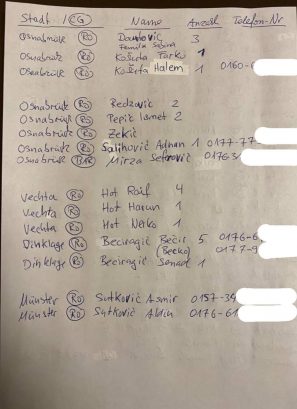 Stadt / CG Name Anzahl Telefon-Nr
Osnabrück RO 3
Familie Sabina
Osnabrück RO Košuta Farko 1
Osnabrück RO Košuta Halem 1 0160-6
Osnabrück RO Redzović 2
Osnabrück RO Pepić Ismet 2
Osnabrück RO Zekić
Osnabrück RO Salihović Adnan 1 0177-77
Osnabrück BAR Mirza Sefrović 0176-3
Vechta RO Hot Raif 4
Vechta RO Hot Harun 1
Vechta RO Hot Nerko 1
Dinklage RO Beciragić Bećir 5 0176-6
(Becko) 0177-9
Dinklage RO Beciragić Senad 1
Münster RO Sutković Asmir 0157-34
Münster RO Sutković Aldin 0176-61